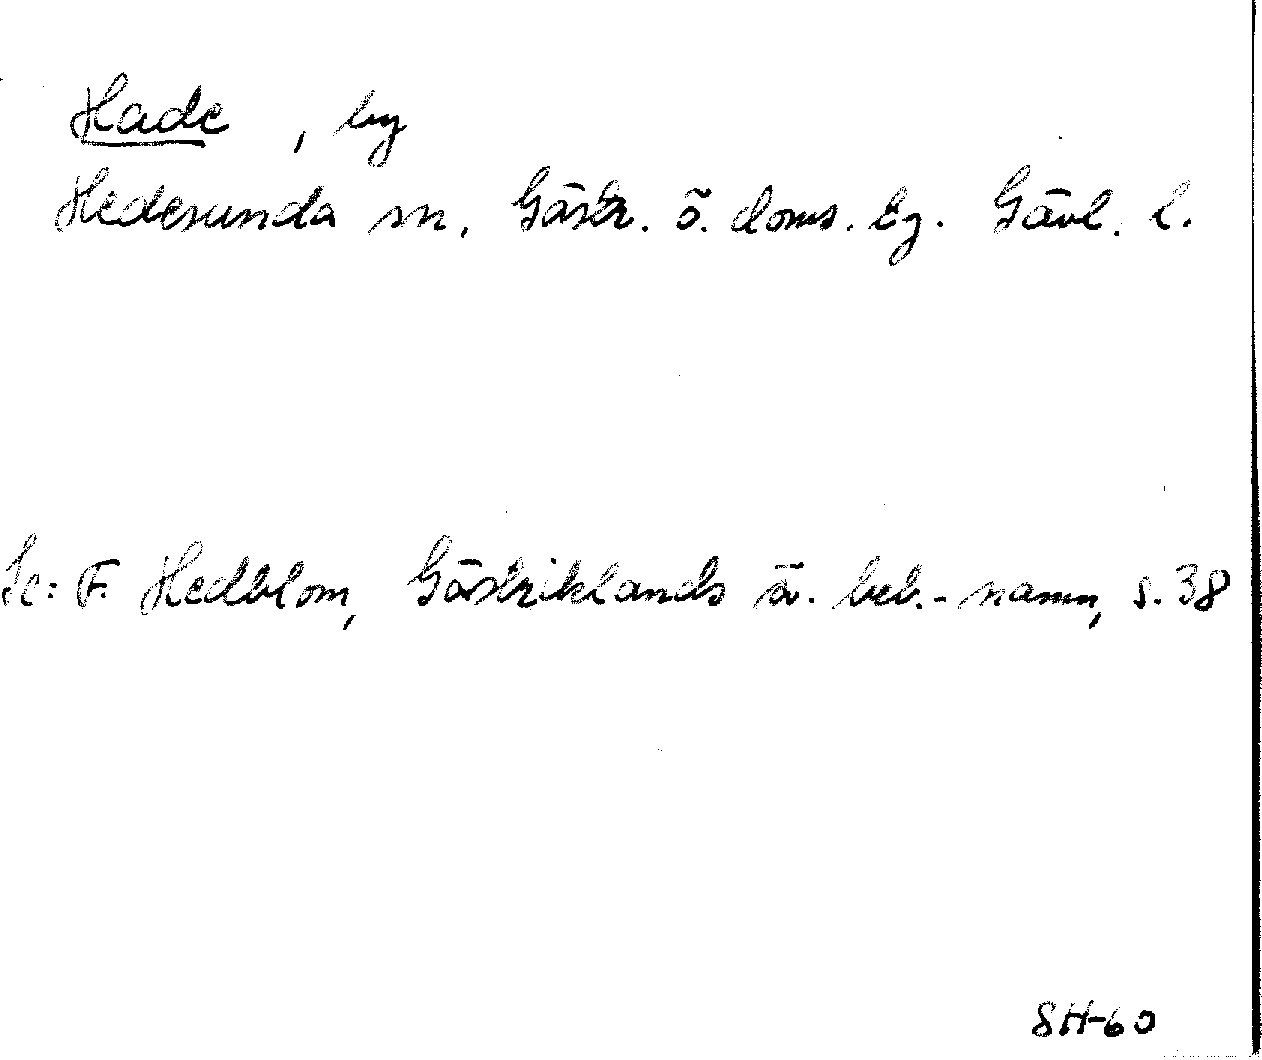 Hade, by
Hedesunda sn, Gästr. ö. doms. tg. Gävl. l.
Se: F. Hedblom, Gästriklands ä. beb.-namn, s. 38
SH-60